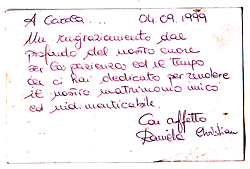 A Carola.... 04.09.1999
Un ringraziamento dal
profondo del nostro cuore
per la pazienza ed il tempo
che ci hai dedicato per rendere
il nostro matrimonio unico
ed indimenticabile.
Con affetto
Daniela Christian